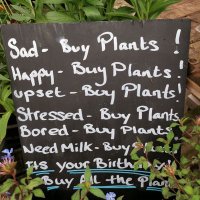 Sad - Buy Plants !
Happy - Buy Plants !
upset - Buy Plants!
Stressed - Buy Plants
Bored - Buy Plants
Need Milk - Buy
Its your Birthday
Buy All the